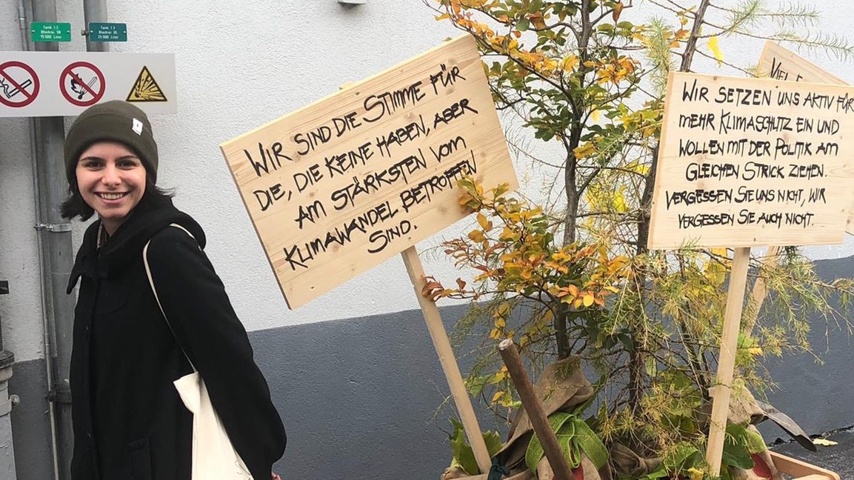 WIR SIND DIE STIMME FÜR
DE, DIE KEINE HABEN, ABER
AM STÄRKSTEN VOM
KLIMAWANDEL BETROFFEN
SIND.
WIR SETZEN UNS AKTIV FÜR
MEHR KLIMASCHUTZ EIN UND
WOLLEN MIT DER POLITIK AM
GLEICHEN STRICK ZIEHEN.
VERGESSEN SIE UNS NICHT, WIR
VERGESSEN SIE AUCH NICHT.
VIEL